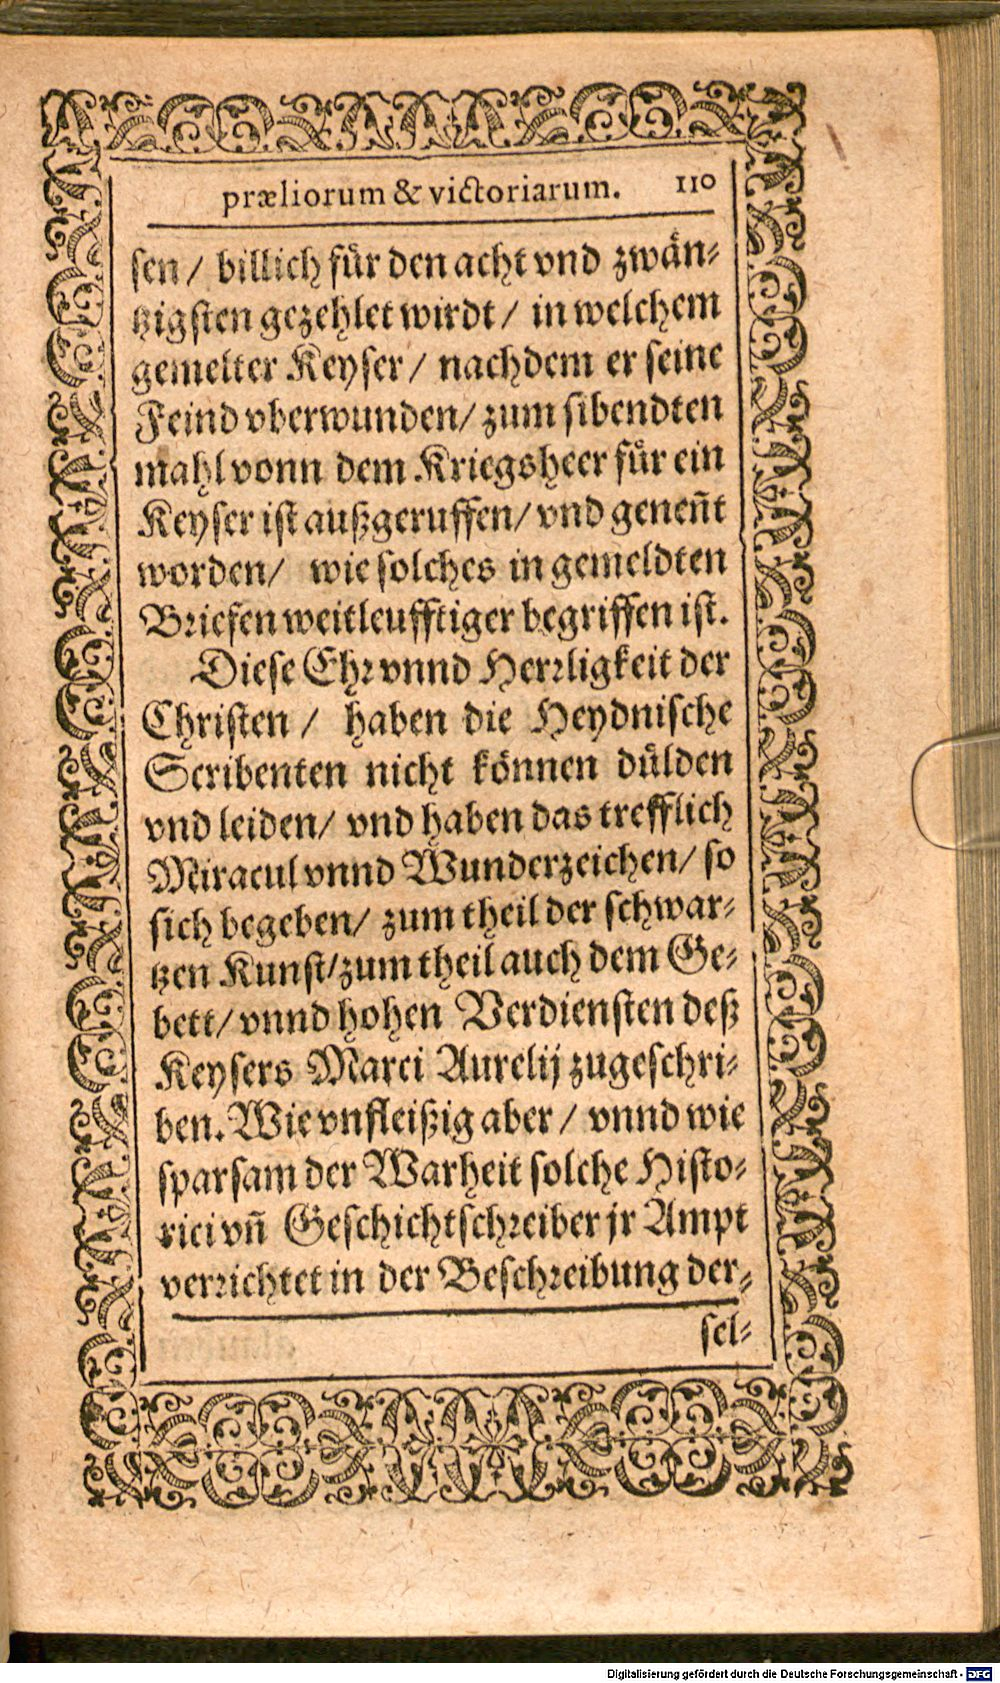 præliorum & victoriarum. 110
sen/ billich fuͤr den acht vnd zwaͤn-
tzigsten gezehlet wirdt/ in welchem
gemelter Keyser/ nachdem er seine
Feind vberwunden/ zum sibendten
mahl vonn dem Kriegsheer fuͤr ein
Keyser ist außgeruffen/ vnd geneñt
worden/ wie solches in gemeldten
Briefen weitleufftiger begriffen ist.
Diese Ehr vnnd Herrligkeit der
Christen/ haben die Heydnische
Scribenten nicht koͤnnen duͤlden
vnd leiden/ vnd haben das trefflich
Miracul vnnd Wunderzeichen/ so
sich begeben/ zum theil der schwar-
tzen Kunst/ zum theil auch dem Ge-
bett/ vnnd hohen Verdiensten deß
Keysers Marci Aurelij zugeschri-
ben. Wie vnfleißig aber/ vnnd wie
sparsam der Warheit solche Histo-
rici vñ Geschichtschreiber jr Ampt
verrichtet in der Beschreibung der-
sel-
Digitalisierung gefördert durch die Deutsche Forschungsgemeinschaft - DFG